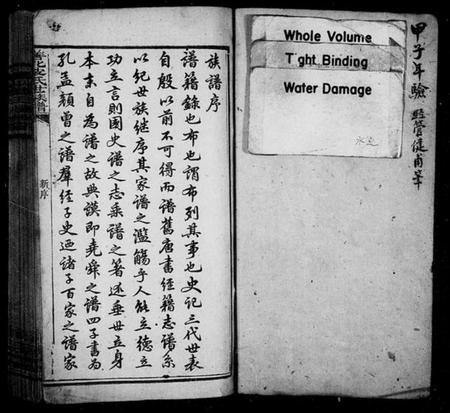 甲子年驗
Whole Volume
Tight Binding
Water Damage
族譜序
譜籍錄也布也謂布列其事也史記三代世表
自殷以前不可得而譜舊唐書經籍志譜系
以紀世族继序其家譜之濫觴乎人能立德立
功立言則國史譜之志乘譜之著述垂世立身
本末自為譜之故典謨即堯舜之譜四子書為
孔孟顏曾之譜羣經子史迺諸子百家之譜家
新序